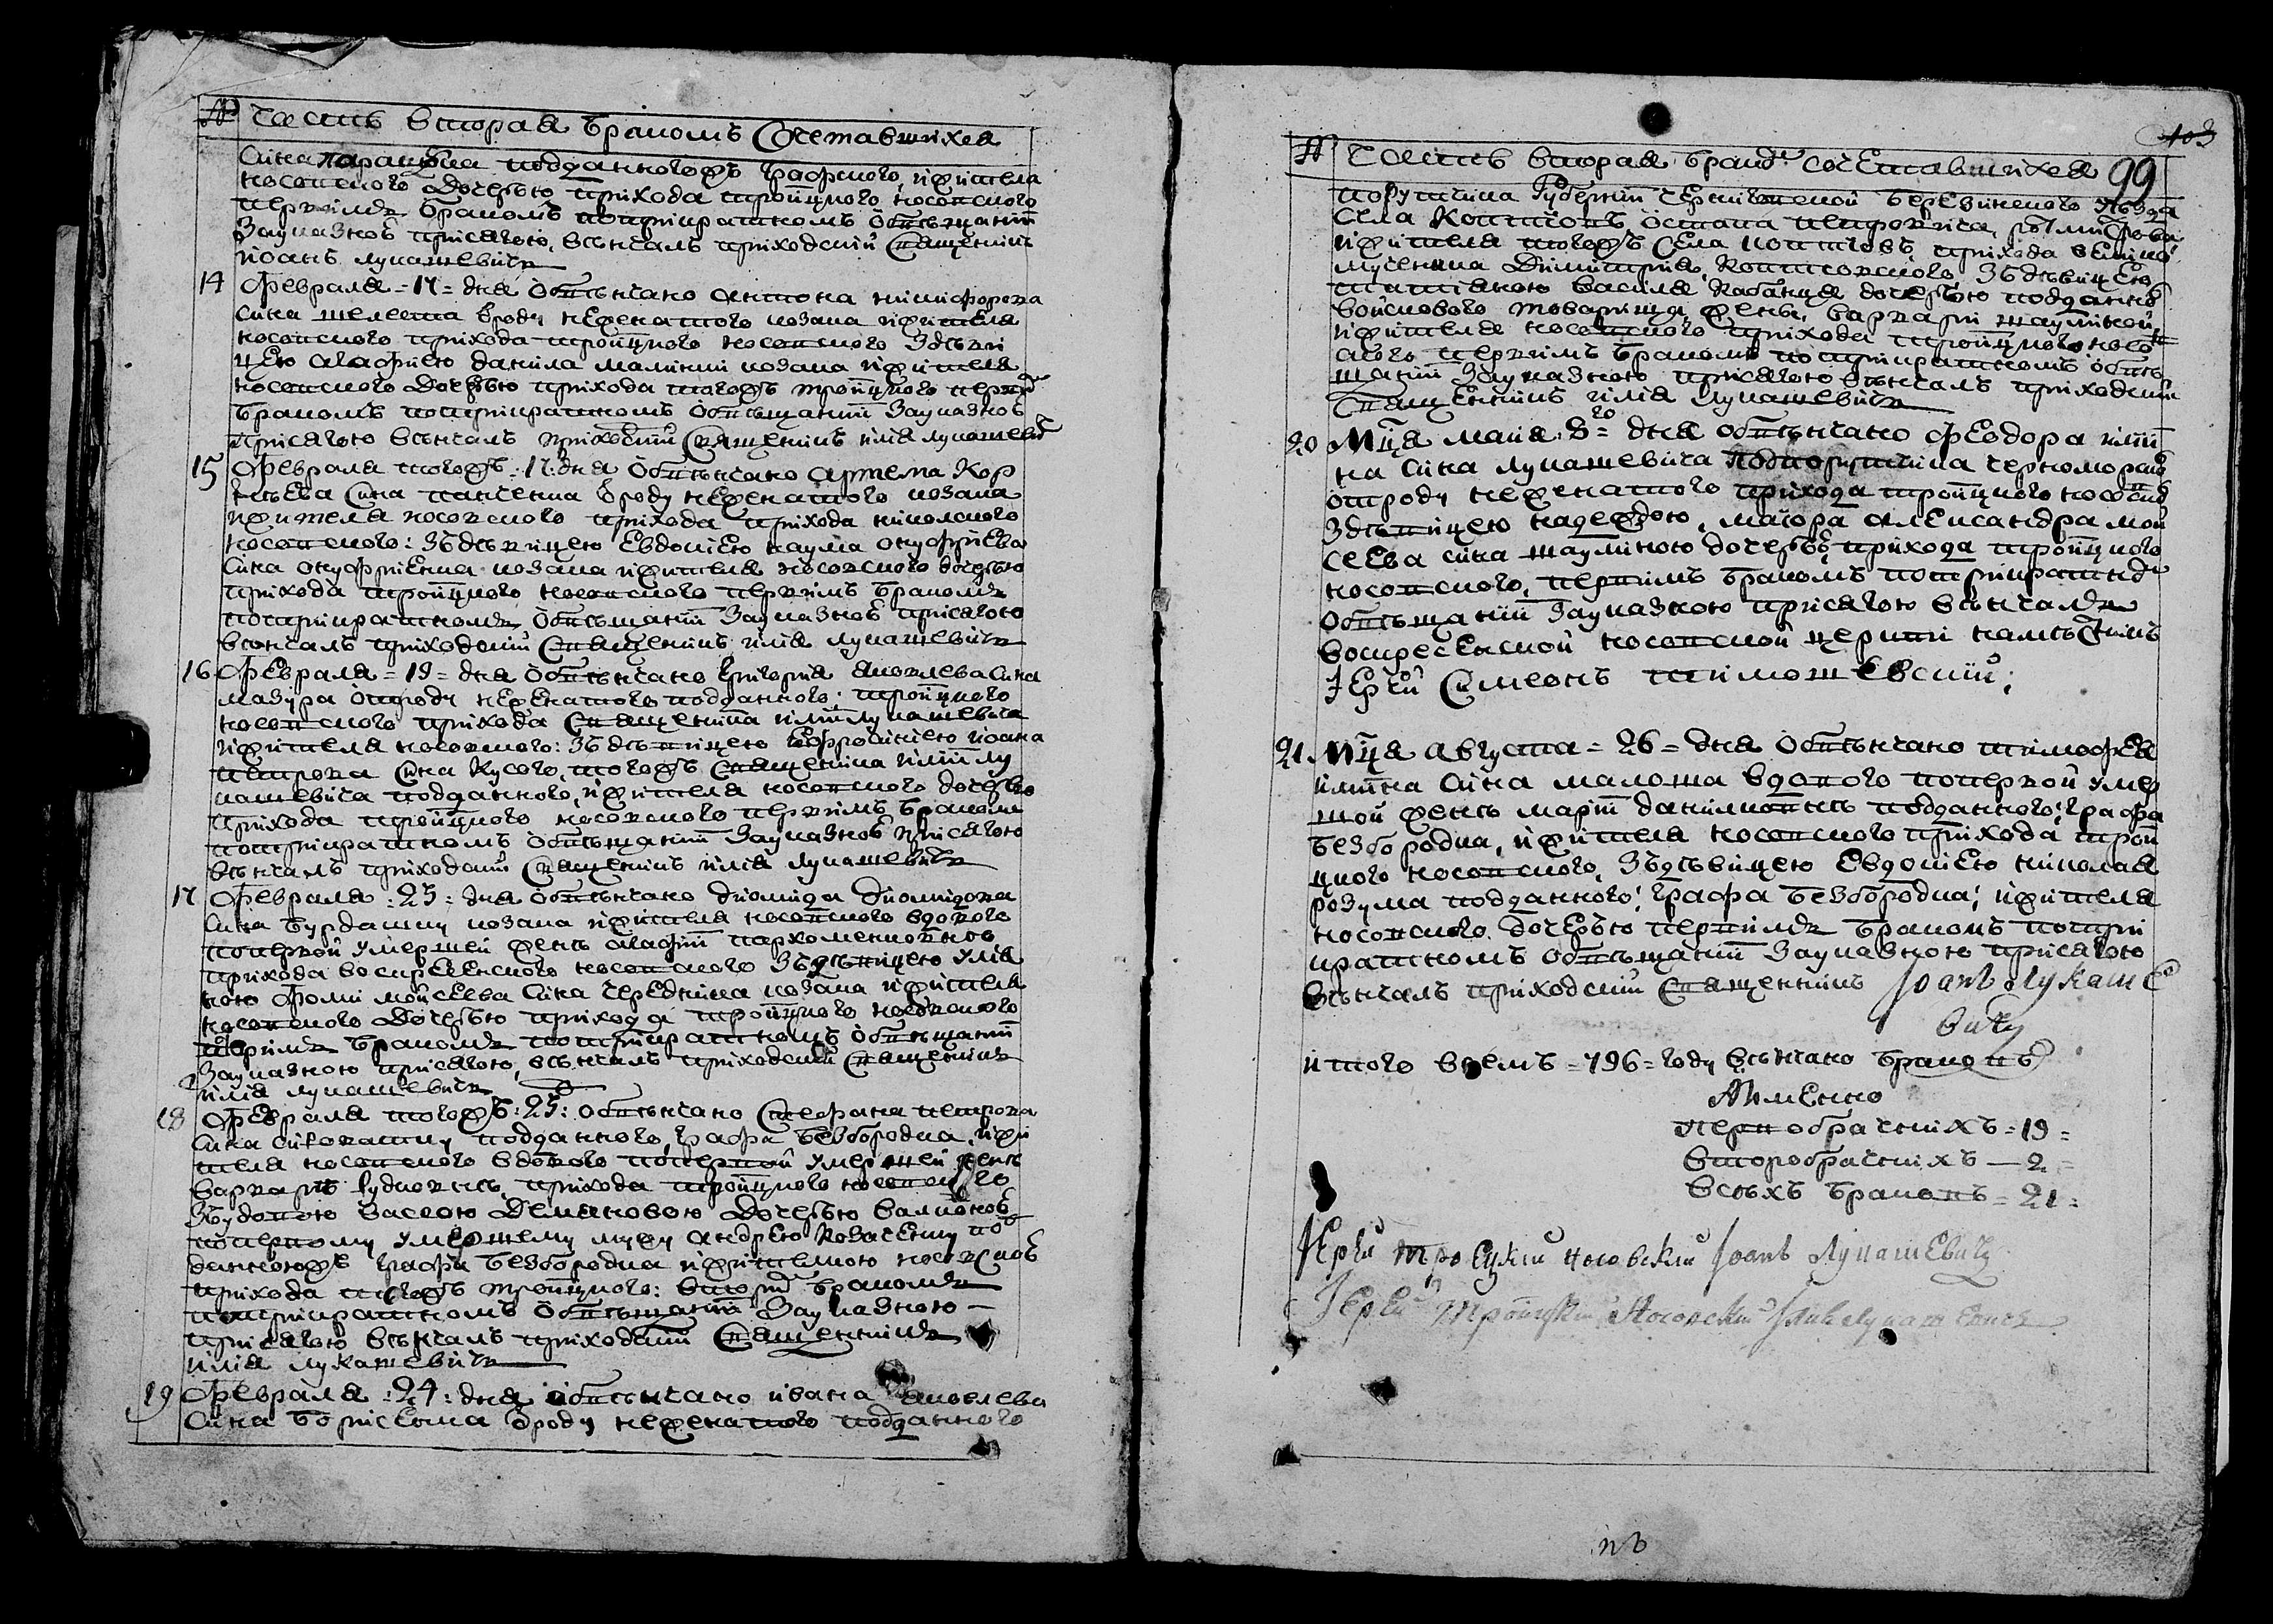 № Часть вторая бракомъ Сочетавшихся
Сина подданногожъ графского, жителя
носовского дочерью прихода тройцкого носовского
первимъ бракомъ потрикратномъ обвѣщаніи
Зауказною присягою, вѣнчалъ приходскій Священникъ
иоанъ лукашевичъ
14 Февраля = 17 = дня обвѣнчано антона никифорова
сина шелеста вроду неженатого козака жителя
носовского прихода тройцкого носовского Здѣви
цею агафиею данила козака жителя
носовского дочерью прихода тогожъ тройцкого первимъ
бракомъ потрикратномъ обвѣщаніи Зауказною
присягою вѣнчалъ приходскій Священникъ илія лукашевичъ
15 Февраля тогожъ : 17 : дня обвѣнчано артема Кор
нѣева Сина вроду неженатого козака
жителя носовского прихода прихода николского
носовского : Здѣвицею Евдокиею наума онуфриева
Сина онуфриенка козака жителя носовского дочерью
прихода тройцкого носовского первимъ бракомъ
потрикратномъ обвѣщаніи Зауказною присягою
вѣнчалъ приходскій Священникъ илія лукашевичъ
16 Февраля = 19 = дня обвѣнчано григорія яковлева сина
мазура отроду неженатого подданного : тройцкого
носовского прихода Священника иліи лукашевича
жителя носовского : Здѣвицею Ефросиниею иоана
петрова Сина Кусого, тогожъ Священника иліи лу
кашевича подданного, жителя носовского дочерью
прихода тройцкого носовского первимъ бракомъ
потрикратномъ обвѣщаніи Зауказною присягою
вѣнчалъ приходскій Священникъ илія лукашевичъ
17 Февраля : 23 : дня обвѣнчано диомида диомидова
Сина бурдашку козака жителя носовского вдового
попервой умершей женѣ агафіи пархоменковнѣ
прихода воскресенского носовского Здѣвицею улія
ною Фоми мойсеева Сина чередника козака жителя
носовского дочерью прихода тройцкого носовского
первимъ бракомъ потрикратномъ обвѣщаніи
Зауказною присягою, вѣнчалъ приходскій Священникъ
илія лукашевичъ
18 Февраля тогожъ : 23 : обвѣнчано Стефана петрова
Сина подданного, графа безбородка, жи
теля носовского вдового попервой умершей женѣ
варварѣ рудковнѣ, прихода тройцкого носовского
Звдовою васою Демяновою дочерью
попервому умершему мужу андрею Козаченку под
данногожъ графа безбородка жителкою носовскою
прихода тогожъ тройцкого : вторимъ бракомъ
потрикратномъ обвѣщаніи Зауказною
присягою вѣнчалъ приходскій Священникъ
илія лукашевичъ
19 Февраля : 24 : дня обвѣнчано ивана яковлева
Сина борисенка вроду неженатого подданного
103
99
№ Часть вторая бракомъ сочетавшихся
поручика Губерніи черниговской березинского уѣзда
Села Количовъ остапа петровича,
жителя тогожъ Села прихода велико
мученика Димитрія, Здѣвицею
татіяною василя дочерью подданной
войскового товариша жени, варвари шаулиной,
жителя носовского прихода тройцкого носов
ского первимъ бракомъ потрикратномъ обвѣ
щаніи Зауказною присягою вѣнчалъ приходскій
Священникъ илія лукашевичъ
20 Мца маія 8го дня обвѣнчано Феодора иліи
на сина лукашевича подпоручика черноморского
отроду неженатого прихода тройцкого носовского
Здѣвицею надеждою, маіора александра мой
сеева сина шаулиною дочерью прихода тройцкого
носовского, первимъ бракомъ потрикратномъ
обвѣщаніи Зауказною присягою вѣнчалъ
воскресенской носовской церкви намѣстникъ
Іерей Симеонъ тимошевскій;
21 Мца августа = 26 = дня обвѣнчано тимофея
илиина сина малоша вдового попервой умер
шой женѣ маріи даниловнѣ подданного, графа
безбородка, жителя носовского прихода трой
цкого носовского, Здѣвицею Евдокиею николая
розума подданного, графа безбородка, жителя
носовского дочерью первимъ бракомъ потри
кратномъ обвѣщаніи Зауказною присягою
вѣнчалъ приходскій Священникъ Іоанъ Лукаше
вичъ
итого всемъ = 796 = году вѣнчано браковъ
Аименно
первобрачнихъ = 19 =
второбрачнихъ — 2 =
всѣхъ браковъ = 21 =
Іерей Троецкій Носовскій Іоанъ Лукашевичъ
Іерей Тройцкій Носовскій Илия Лукашевичъ